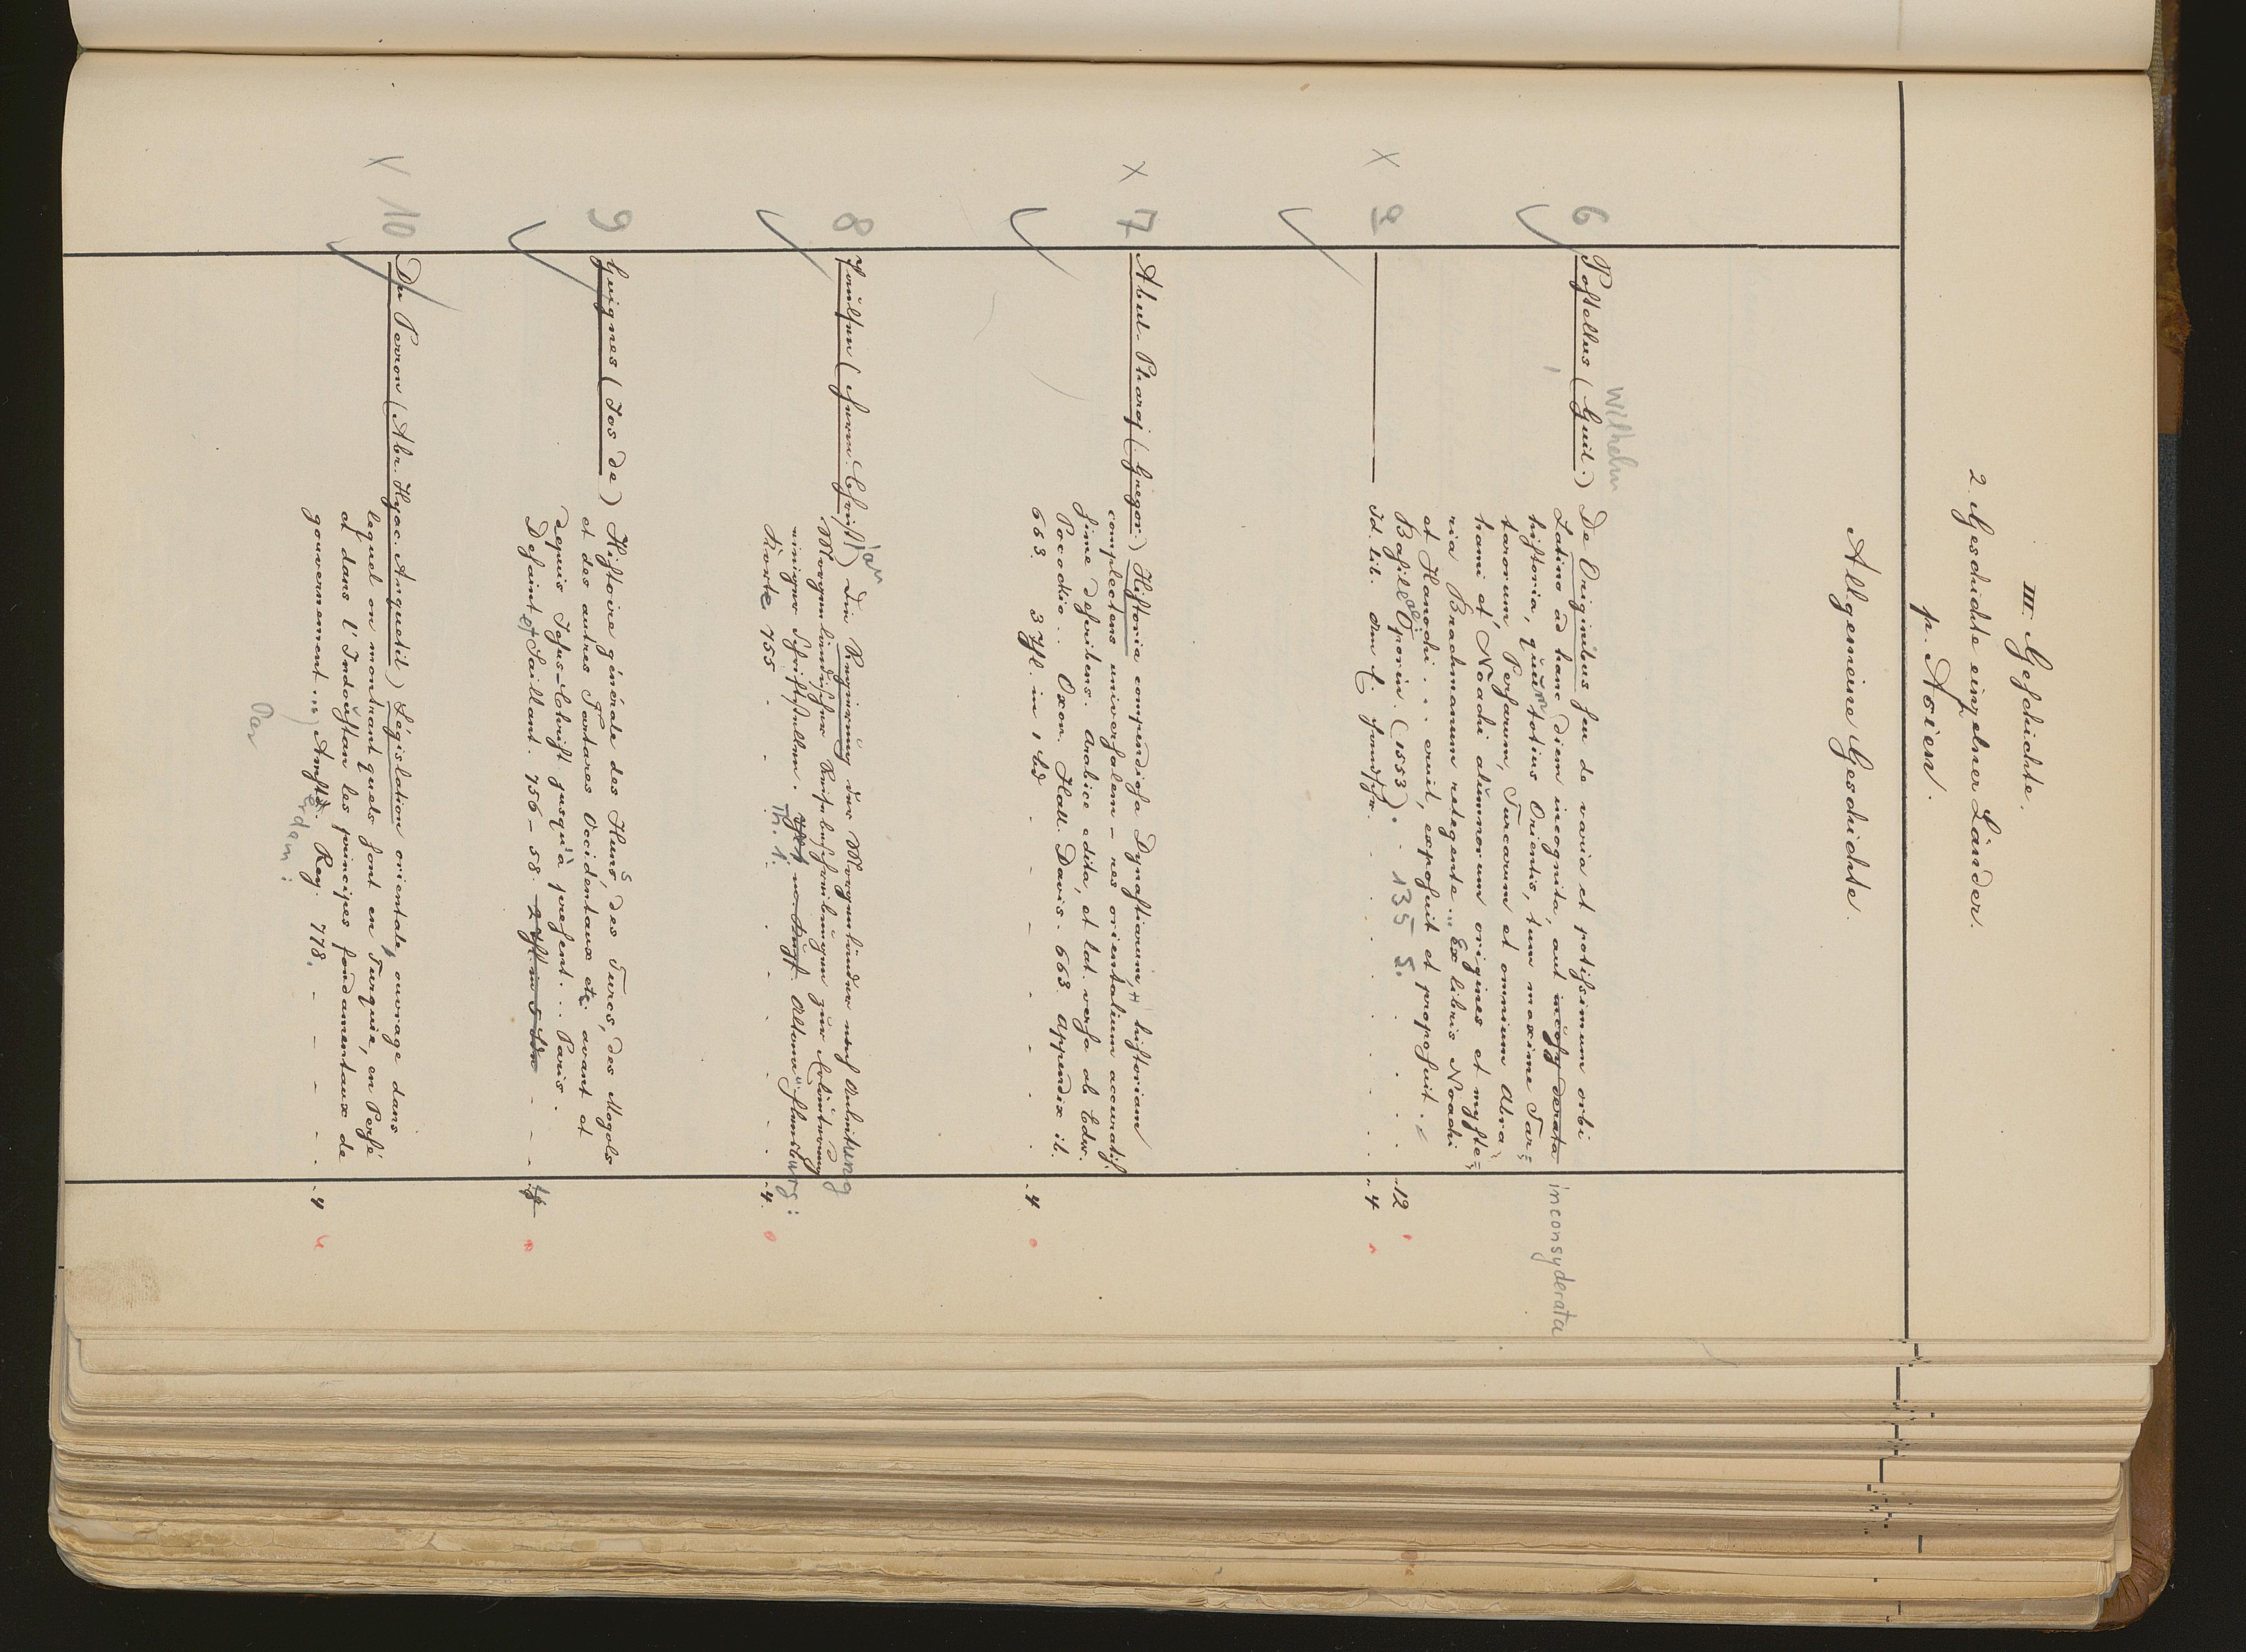 III. Geschichte.
2. Geschichte einzelner Länder.
p. Asien.
Allgemeine Geschichte.
Wilhelm
6 Postellus (Guil.) De Originibus seu de varia et potissimum orbi
Latino ad hanc diem incognita, aut incosyderata inconsyderata
historia, quum totius Orientis, tum maxime Tar=
tarorum, Persarum, Turcarum et omnium Abra
hami et Noachi alumnorum origines et myste=
ria Brachmanum retegente... Ex libris Noachi
et Hanochi... eruit, exposuit et proposuit..
Basileae: Oporin. (1553). 135 S. 12
x 2 ——— id. lib. 4
x 7 Abul-Pharaj (Gregor.) Historia compendiosa Dynastiarum, historiam
complectens universalem - res orientalium accuratis=
sime describens. Arabice edita, et lat. versa ab Edw.
Pocockio.. Oxon. Hall. Davis. 663. Appendix ib.
663. 3 Thl. in 1 Bd 4
8 Paulsen (Herm. Christian) Die Regierung der Morgenländer nach Anleitung
Morgenländischer Reisebeschreibungen zur Erläuterung
einiger Schriftstellen. Th. 1. Altona u Flensburg:
Korte 755 4
9 Guignes (Jos de) Histoire générale des Huns, des Turcs, des Mogols
et des autres Tartares Occidentaux etc avant et
depuis Jesus-Christ jusqu'à present... Paris.
Desaint et Saillant. 756-58. 2 Thl. in 5 Bdn 4
x 10 Du Perron (Abr. Hyac. Anquetil) Législation orientale, ouvrage dans
lequel on montrant quels sont en Turquie, en Perse
et dans l'Indoustan les principes fondamentaux de
gouvernement... Amsterdam: Rey. 778. 4
Par